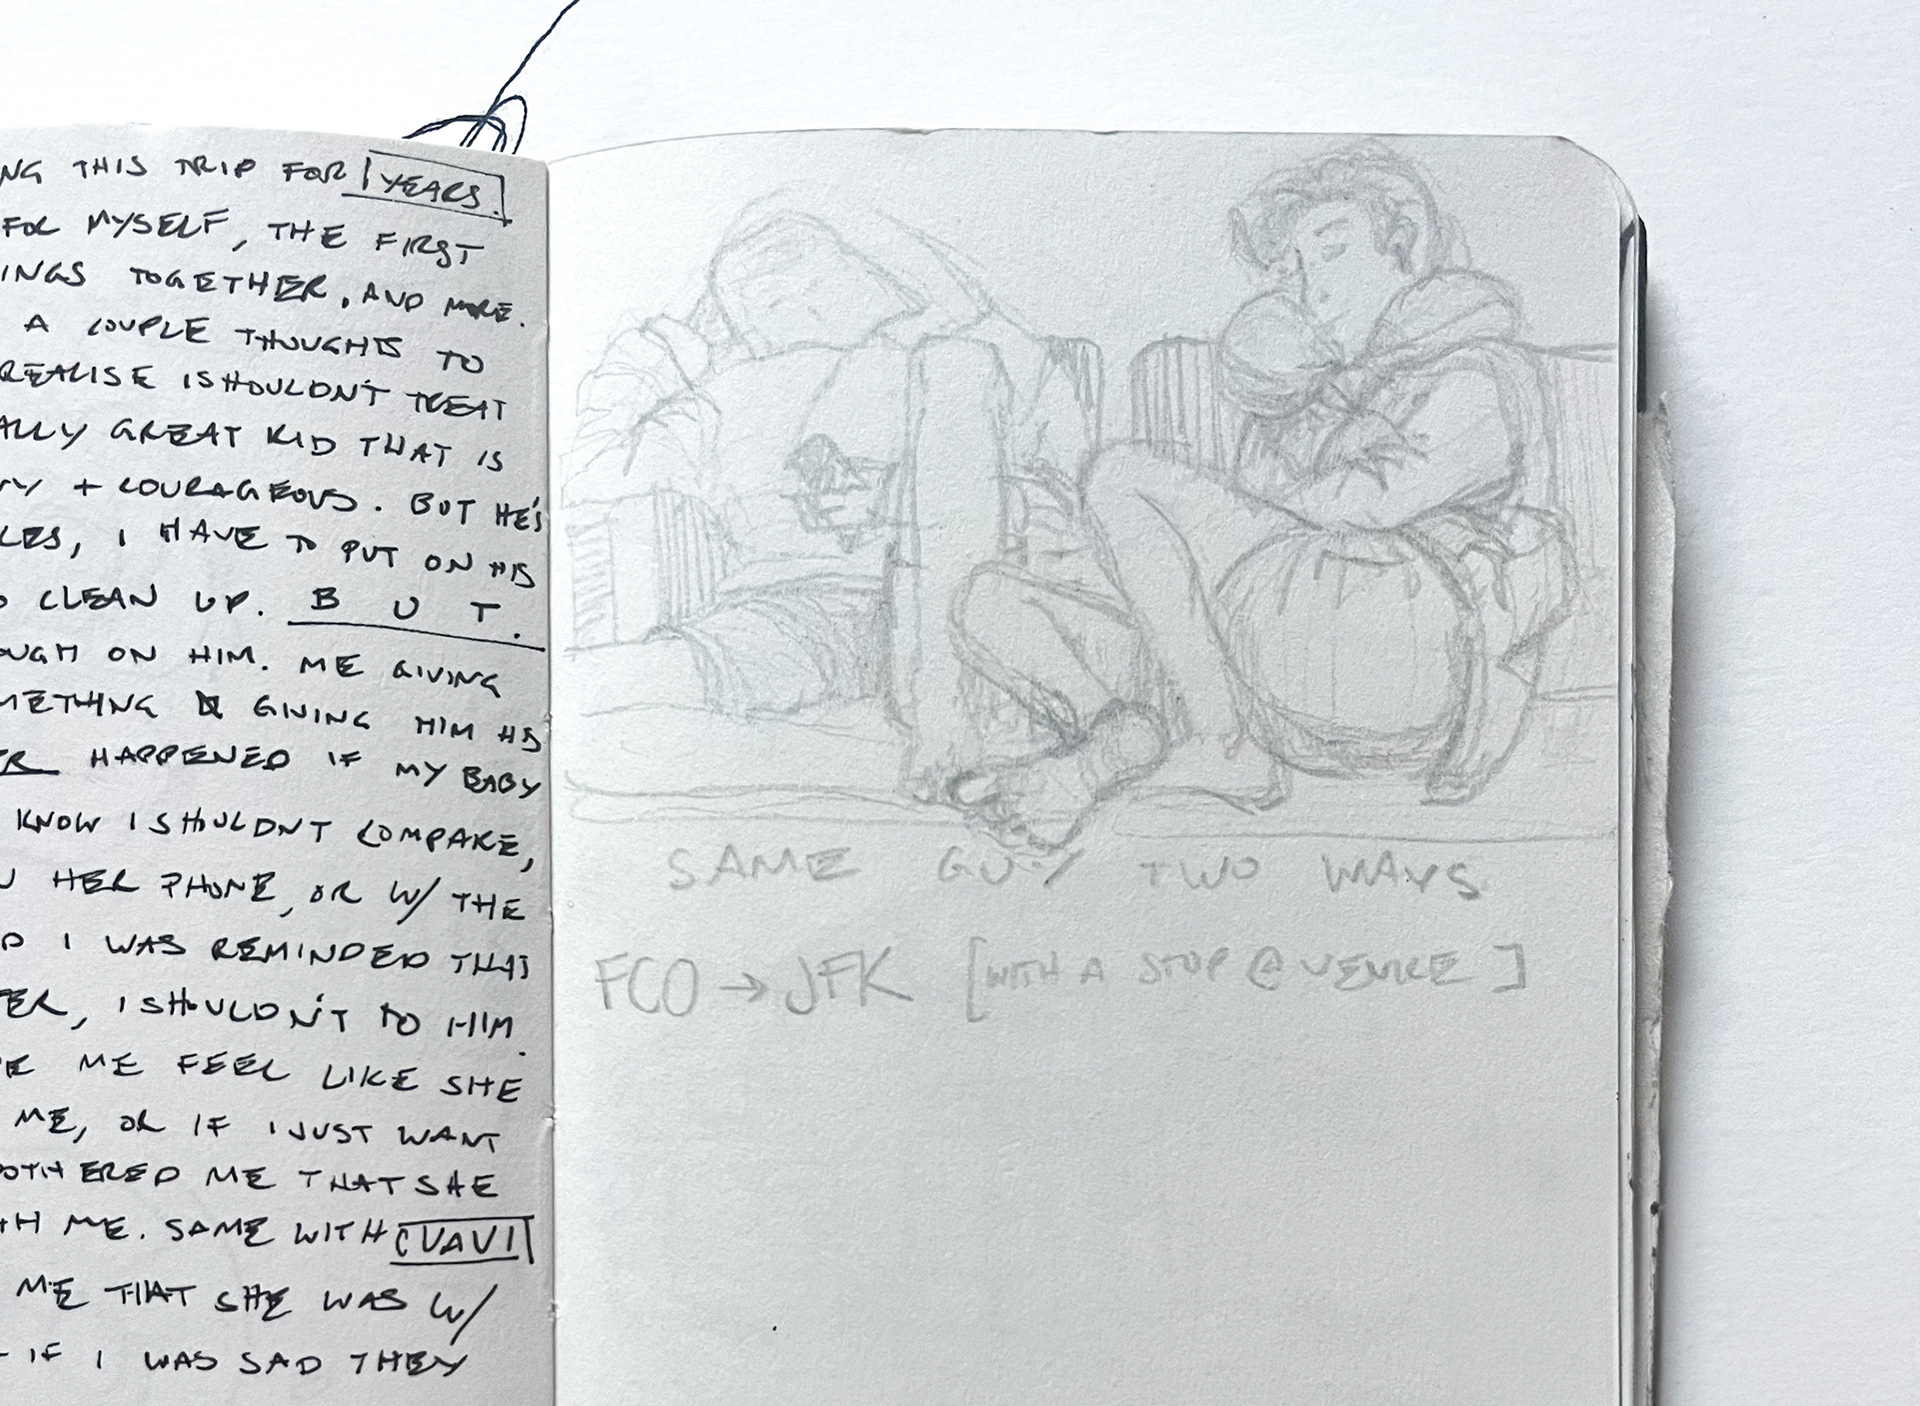 NG THIS TRIP FOR YEARS.
FOR MYSELF, THE FIRST
INGS TOGETHER, AND MORE.
A COUPLE THOUGHTS TO
REALISE I SHOULDN'T TREAT
ALLY GREAT KID THAT IS
+ COURAGEOUS. BUT HE'S
LES, I HAVE TO PUT ON HIS
CLEAN UP. BUT.
OUGH ON HIM. ME GIVING
METHING GIVING HIM HIS
ER HAPPENED IF MY BABY
KNOW I SHOULDNT COMPARE,
HER PHONE, OR W/ THE
D I WAS REMINDED THAT
TER, I SHOULDN'T TO HIM.
ME FEEL LIKE SHE
ME, OR IF I JUST WANT
OTHERED ME THAT SHE
TH ME. SAME WITH
ME THAT SHE WAS W/
IF I WAS SAD THEY
SAME GUY TWO WAYS
FCO → JFK [WITH A STOP @ VENICE]